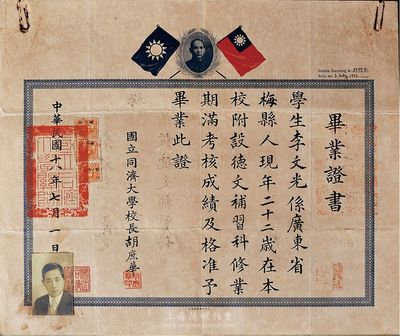 畢業證書
學生李文光係廣東省
梅縣人現年二十二歲在本
校附設德文補習科修業
期滿考核成績及格准予
畢業此證
國立同濟大學校長胡庶華
中華民國十八年七月一日
上海陽明拍賣